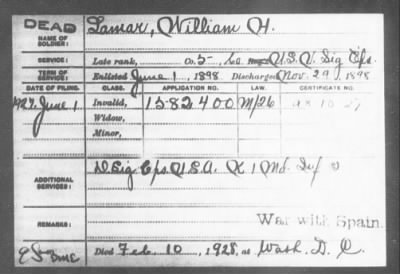 DEAD
NAME OF SOLDIER:
Lamar, William H.
SERVICE:
Late rank, Co. 5-, U.S.V. Sig Cps.
TERM OF SERVICE:
Enlisted June 1, 1898 Discharged Nov. 29, 1898
DATE OF FILING. CLASS. APPLICATION NO. LAW. CERTIFICATE NO.
1927 June 1 Invalid, 1582400 M/26 A 8 10 27
Widow,
Minor,
ADDITIONAL SERVICES:
D Sig Cps U.S.A. K 1 Md. Inf
REMARKS:
War with Spain.
Died Feb. 10, 1928, at Wash. D. C.